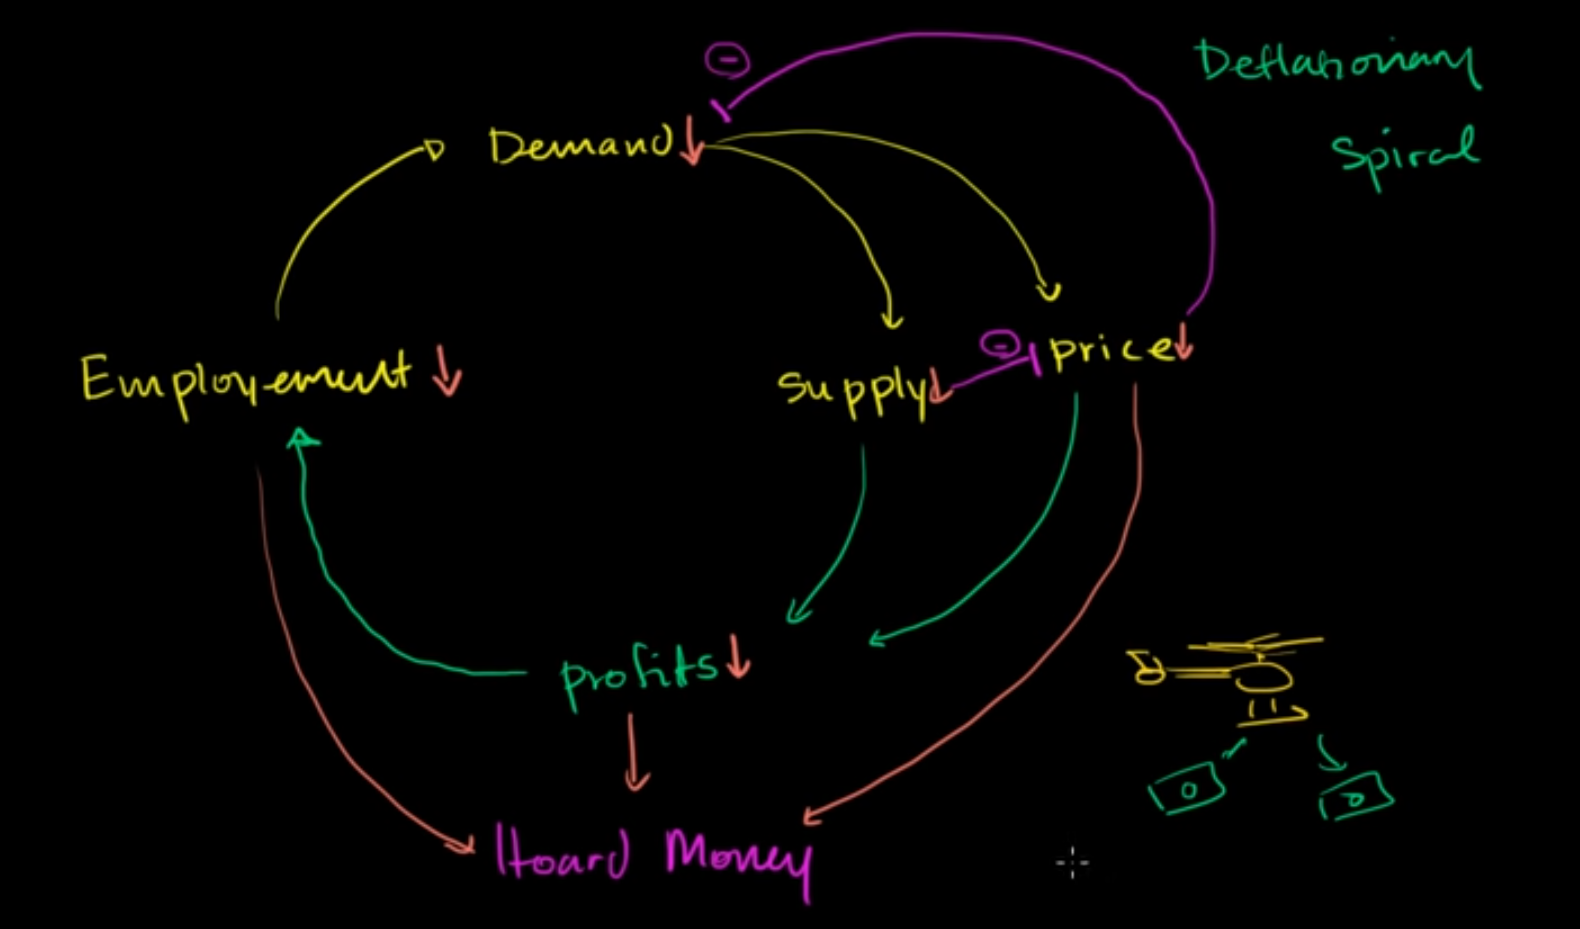 Deflationary
Spiral
Demand
Employement
Supply
price
profits
Hoard Money